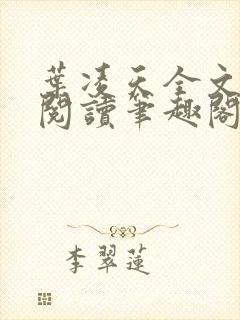 葉凌天全文
閱讀筆趣閣
李翠蓮